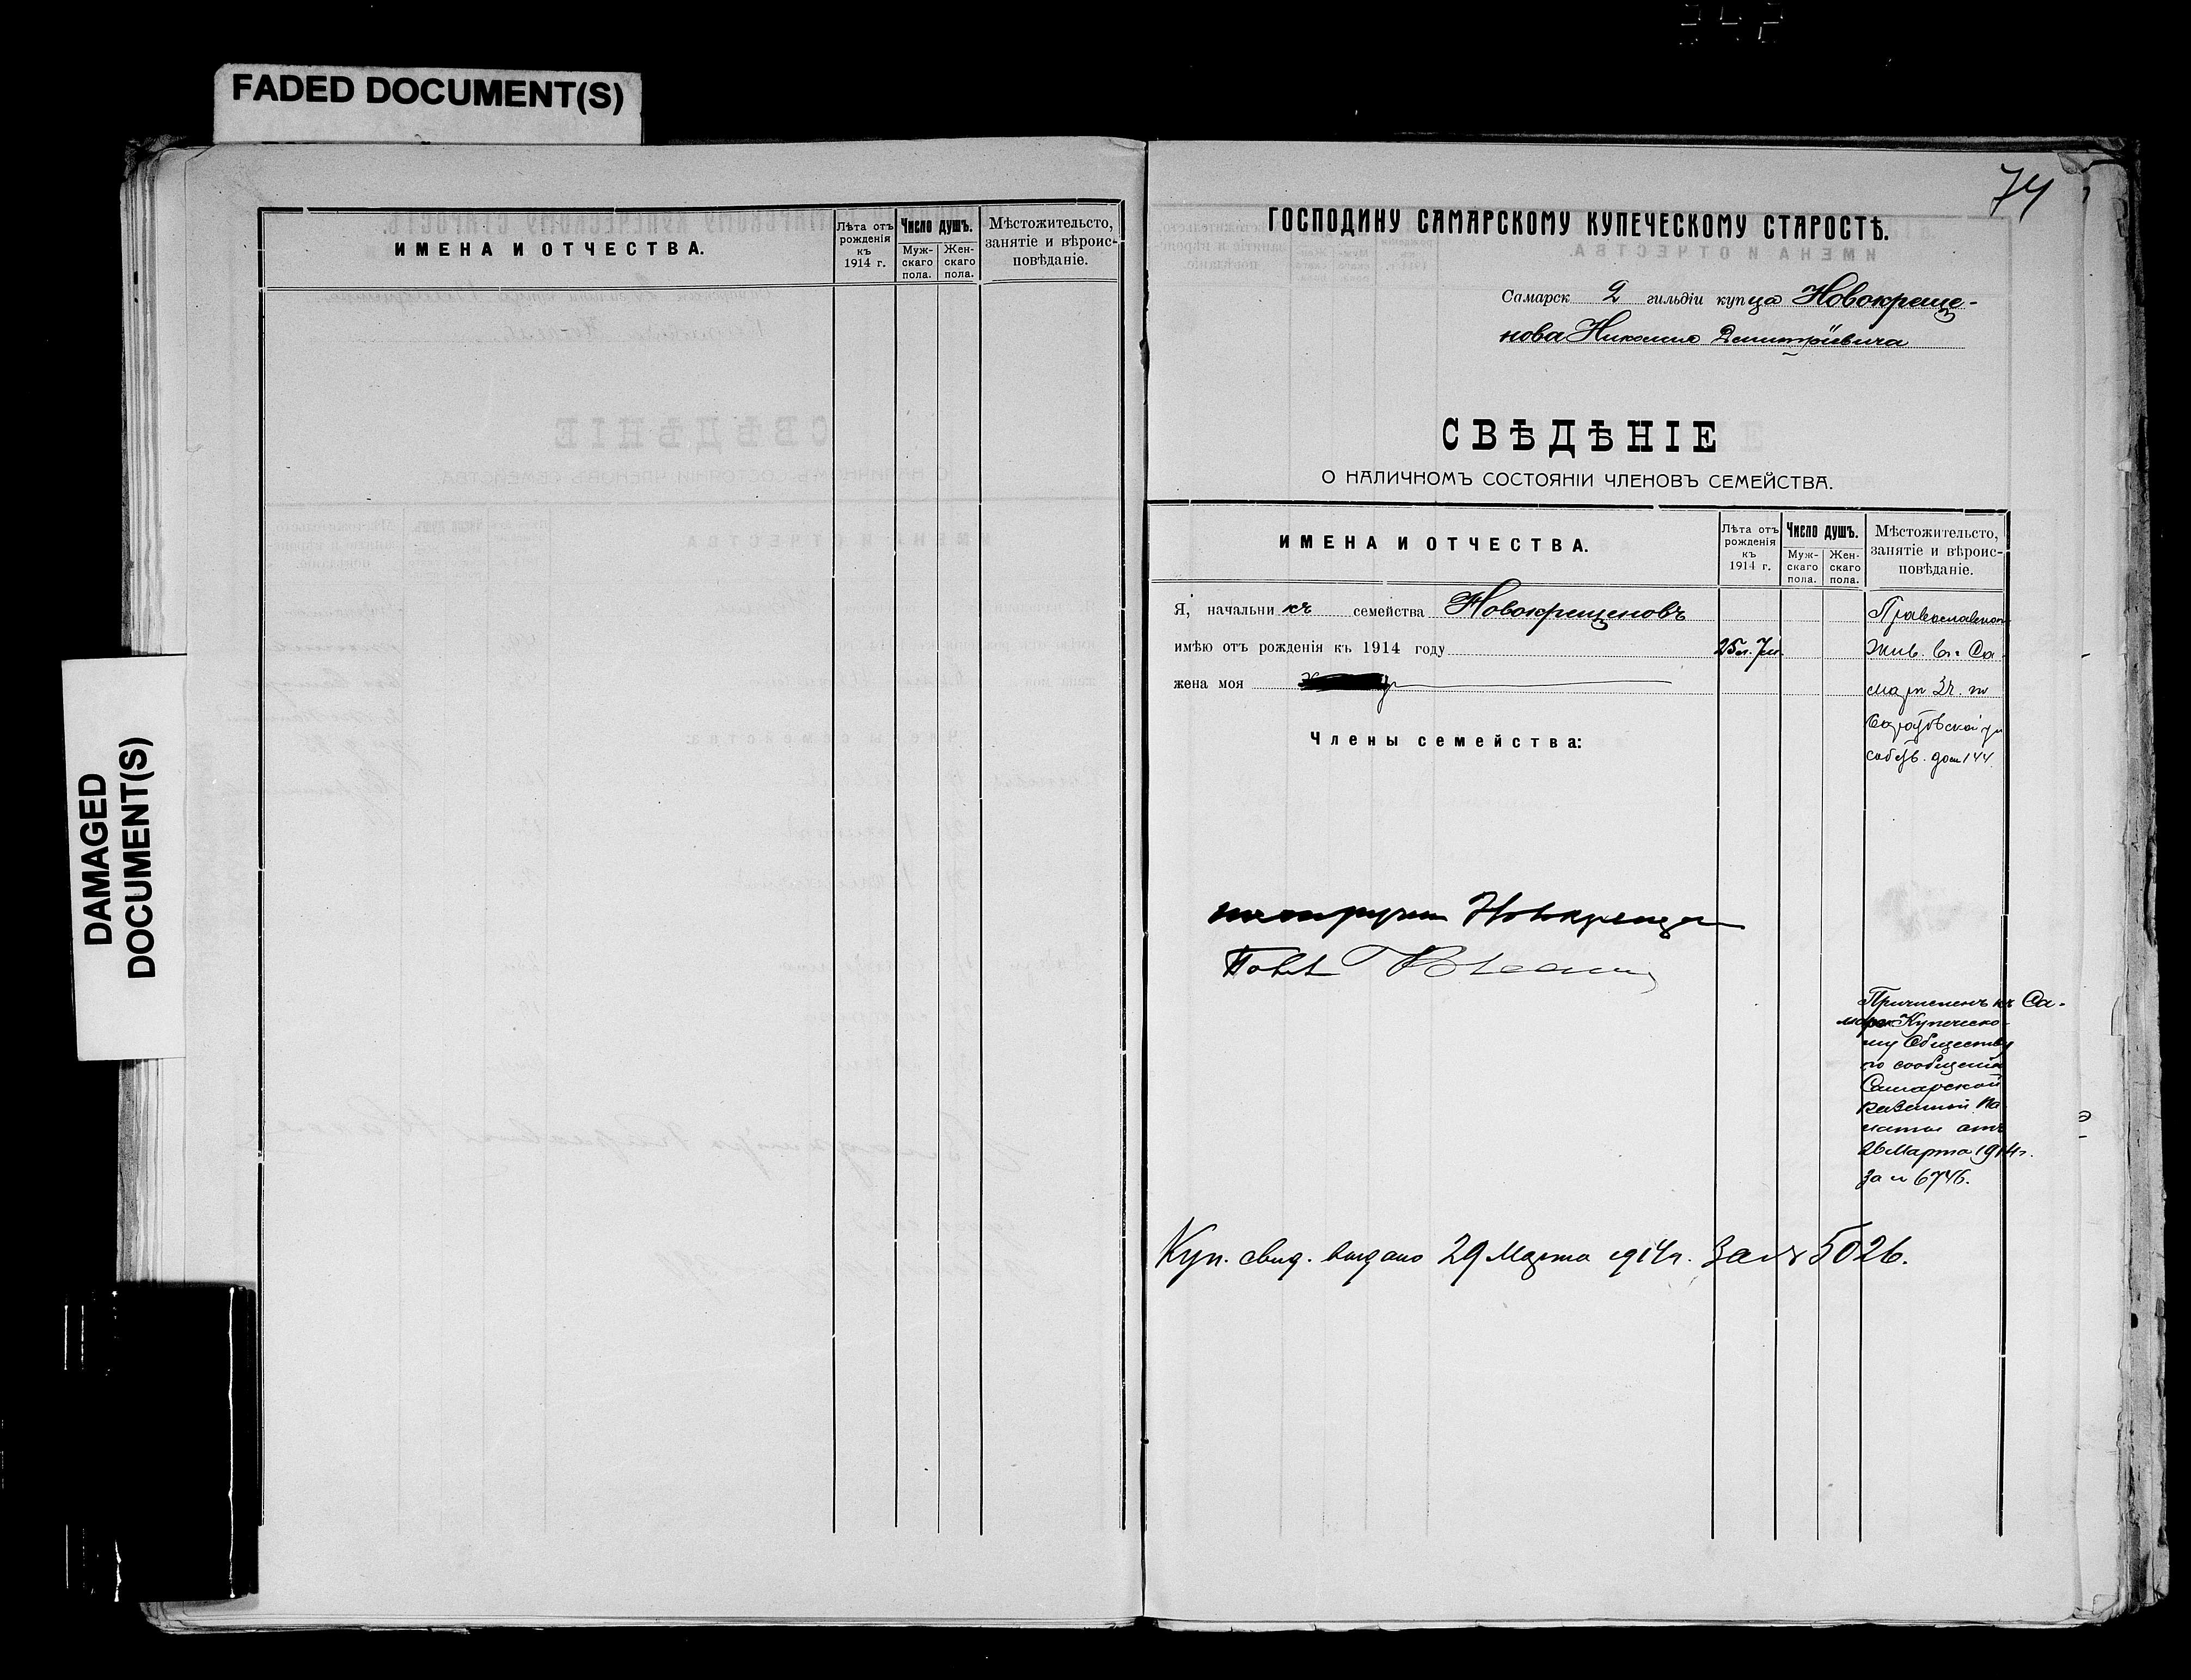 FADED DOCUMENT(S)
DAMAGED
DOCUMENT(S)
ИМЕНА И ОТЧЕСТВА.
Лѣта отъ рожденія къ 1914 г.
Число душъ.
Муж-скаго пола.
Жен-скаго пола.
Мѣстожительсто, занятіе и вѣроис-повѣданіе.
74
ГОСПОДИНУ САМАРСКОМУ КУПЕЧЕСКОМУ СТАРОСТѢ.
Самарск 2 гильдіи купца Новокреще-
нова Николая Димитріевича
СВѢДѢНІЕ
О НАЛИЧНОМЪ СОСТОЯНІИ ЧЛЕНОВЪ СЕМЕЙСТВА.
ИМЕНА И ОТЧЕСТВА.
Лѣта отъ рожденія къ 1914 г.
Число душъ.
Муж-скаго пола.
Жен-скаго пола.
Мѣстожительсто, занятіе и вѣроис-повѣданіе.
Я, начальникъ семейства Новокрещеновъ
имѣю отъ рожденія къ 1914 году 25л. 7м
жена моя
Члены семейства:
Православнаго
Жив. въ г. Са-
мар 3ч. по
Саратовской ул
собств. дом 144.
Новокрещен
Причисленъ къ Са-
марск Купеческо-
му Обществу
по сообщенію
Самарской
Казенной Па
латы отъ
26 Марта 1914 г.
за № 6746.
Куп. свид. выдано 29 Марта 1914 г. за № 5026.